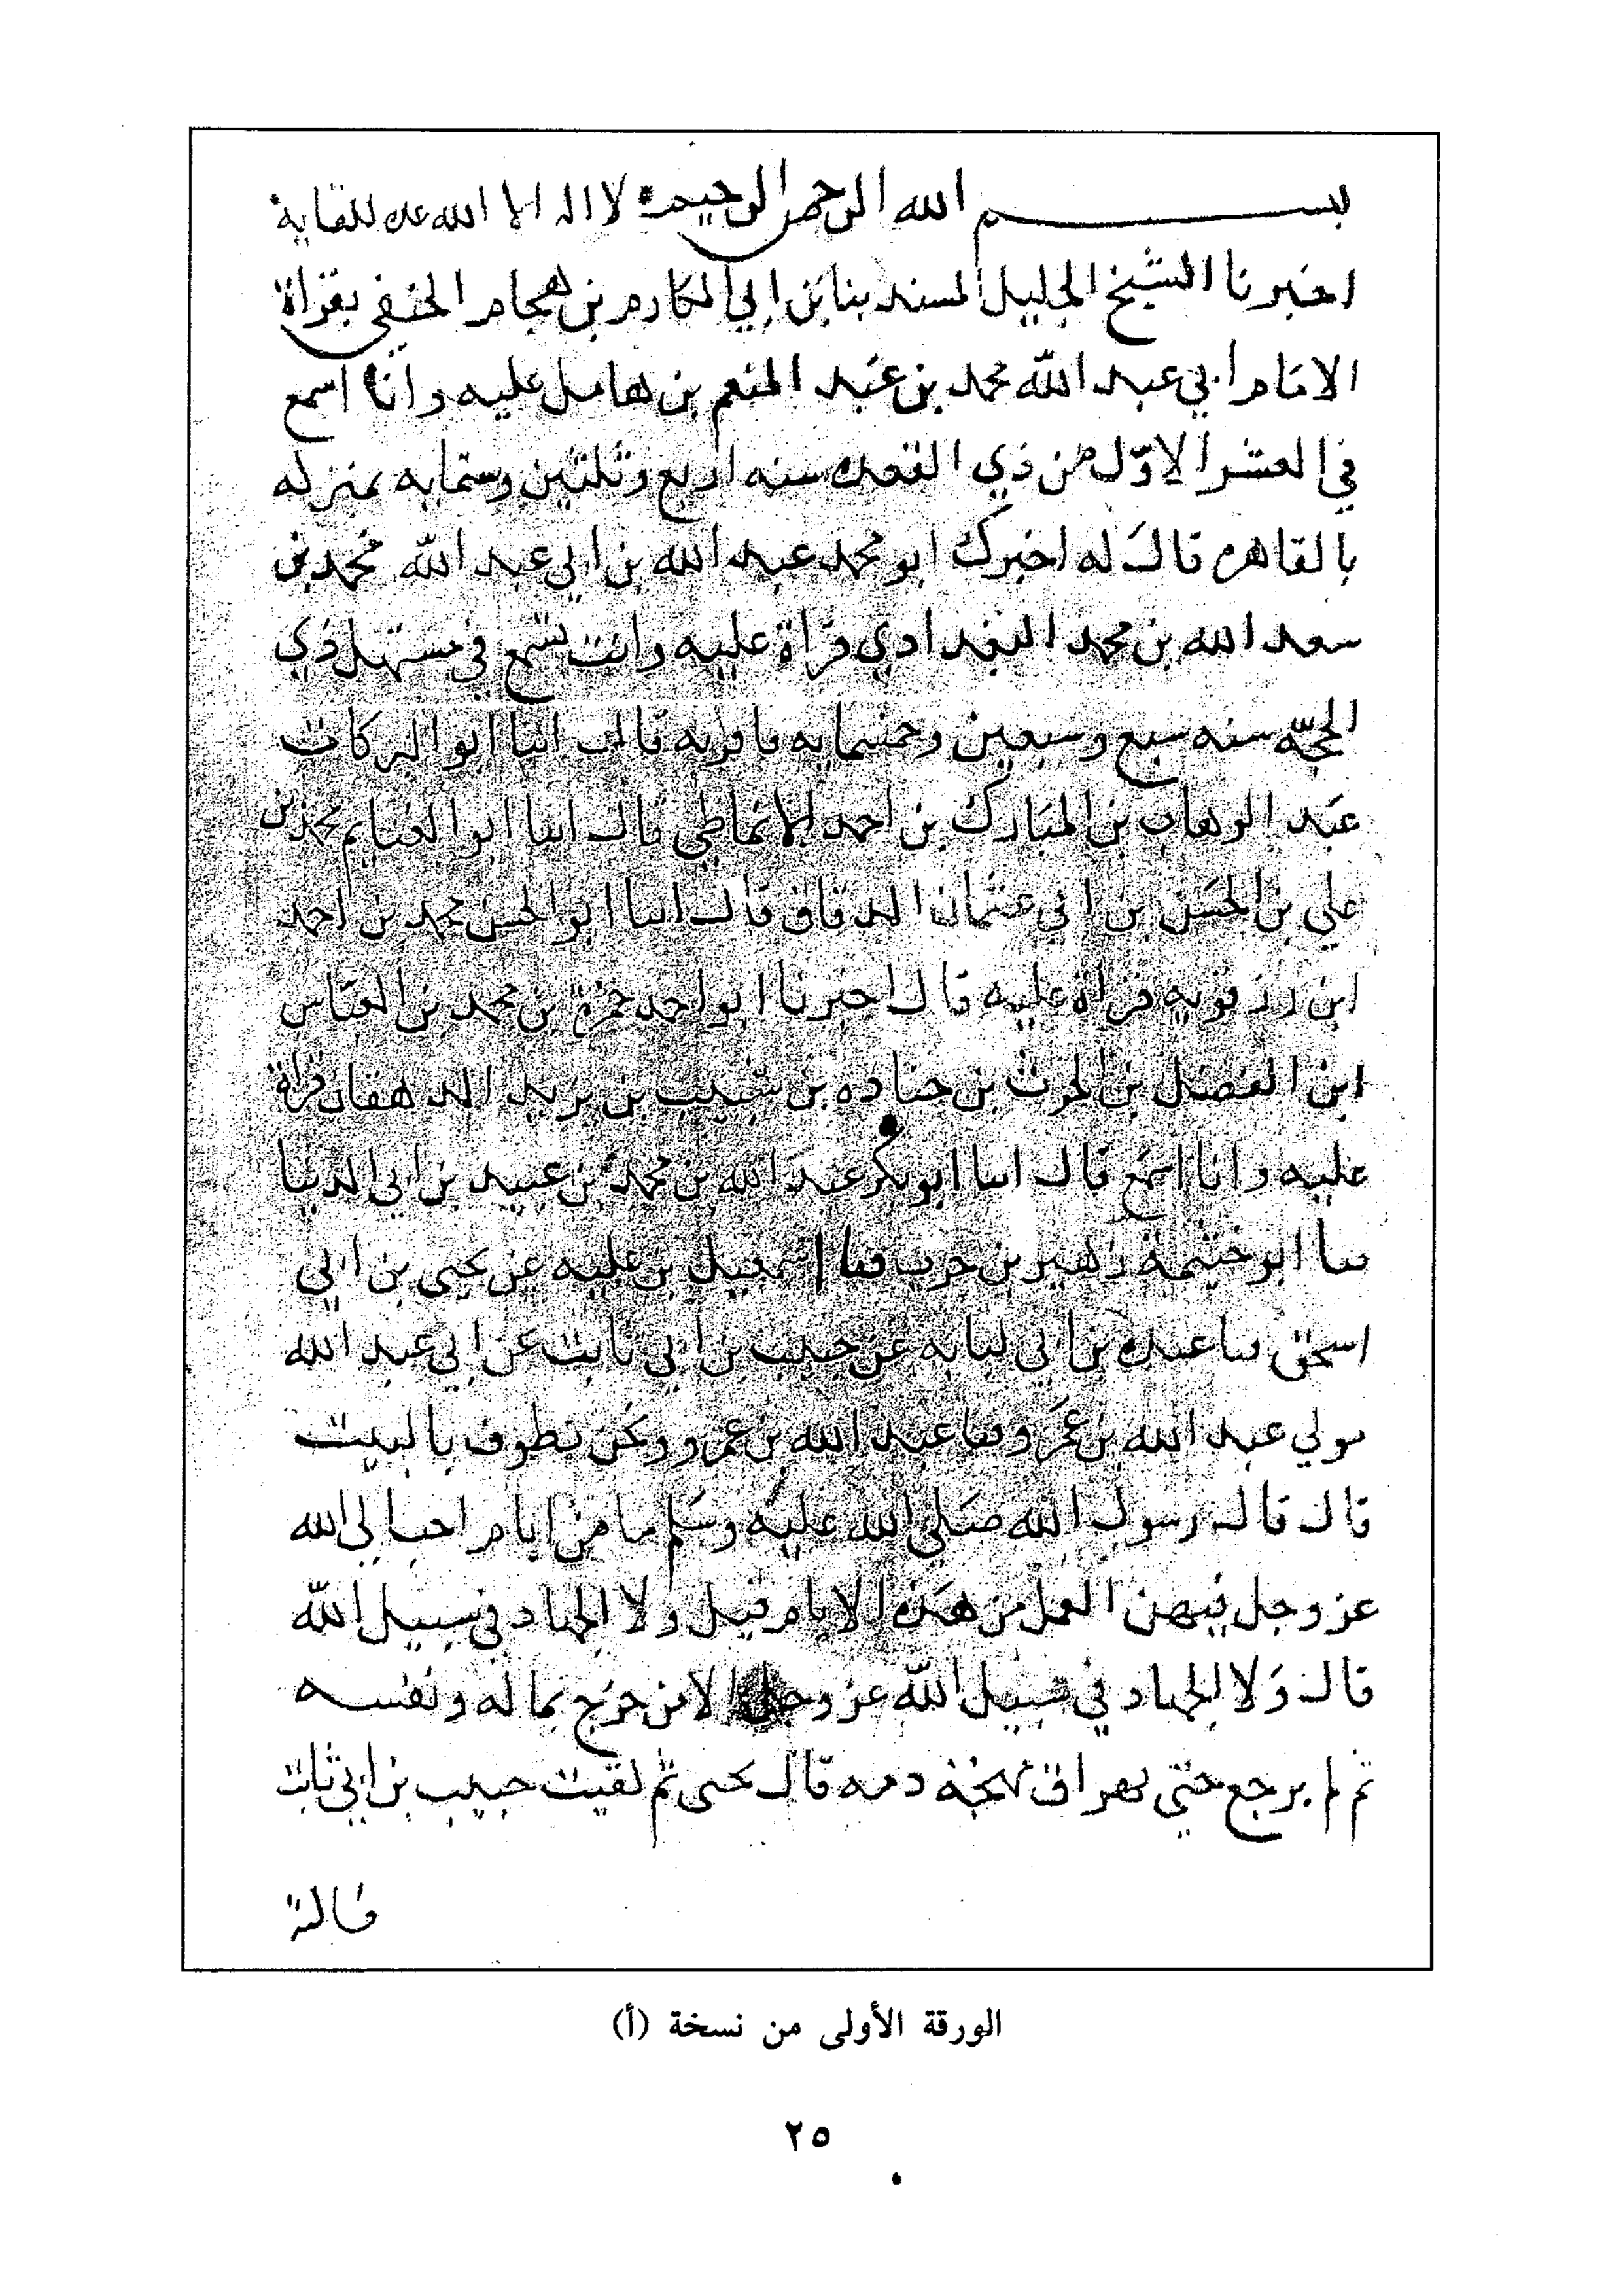 بسم الله الرحمن الرحيم لا اله الا الله عده للقايه
اخبرنا الشيخ الجليل المسند بنا بن ابي المكارم بن هجام الحنفي بقراة
الامام ابي عبد الله محمد بن عبد المنعم بن هامل عليه وانا اسمع
في العشر الاول من ذي القعده سنه اربع وثلثين وستمايه بمنزله
بالقاهره قال له اخبرك ابو محمد عبد الله بن ابي عبد الله محمد بن
سعد الله بن محمد البغدادي قراة عليه وانت تسمع في مستهل ذي
الحجة سنه سبع وسبعين وخمسمايه فاقر به قال انبا ابو البركات
عبد الوهاب بن المبارك بن احمد الانماطي قال انبا ابو الغنايم محمد بن
علي بن الحسن بن ابي عثمان الدقاق قال انبا ابو الحسن محمد بن احمد
ابن رزقويه قراة عليه قال اخبرنا ابو احمد حمزة بن محمد بن العباس
ابن الفضل بن الحرث بن جناده بن شبيب بن يزيد الدهقان قراة
عليه وانا اسمع قال انبا ابو بكر عبد الله بن محمد بن عبيد بن ابي الدنيا
ثنا ابو خيثمة زهير بن حرب ثنا اسمعيل بن عليه عن يحيى بن ابي
اسحق ثنا عبدة بن ابي لبابه عن حبيب بن ابي ثابت عن ابي عبد الله
مولي عبد الله بن عمرو ثنا عبد الله بن عمرو ونحن نطوف بالبيت
قال قال رسول الله صلى الله عليه وسلم ما من ايام احب الى الله
عز وجل فيهن العمل من هذه الايام قيل ولا الجهاد في سبيل الله
قال ولا الجهاد في سبيل الله عز وجل الا من خرج بماله ونفسه
ثم لم يرجع حتى تهراق مهجة دمه قال يحيى ثم لقيت حبيب بن ابي ثابت
فسالته
الورقة الأولى من نسخة (أ)
٢٥